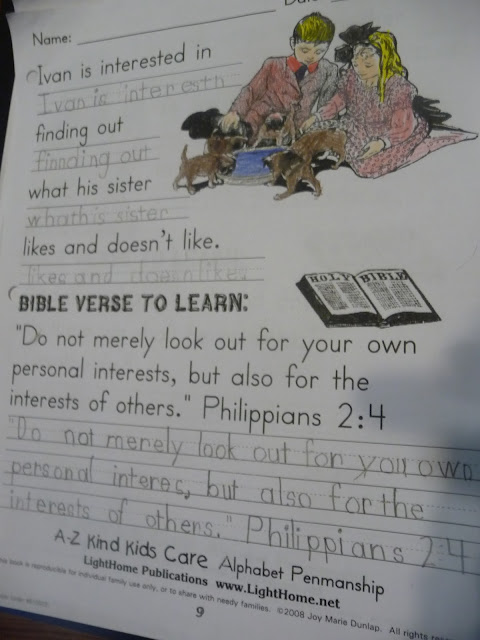 Name:
Ivan is interested in
Ivan is interesth
finding out
finnding out
what his sister
whathis sister
likes and doesn't like.
likes and doesnlikes
HOLY BIBLE
BIBLE VERSE TO LEARN:
"Do not merely look out for your own
personal interests, but also for the
interests of others." Philippians 2:4
"Do not merely look out for your own
personal interes, but also for the
interests of others." Philippians 2:4
A-Z Kind Kids Care Alphabet Penmanship
LightHome Publications www.LightHome.net
book is reproducible for individual family use only, or to share with needy families. ©2008 Joy Marie Dunlap. All rights
9